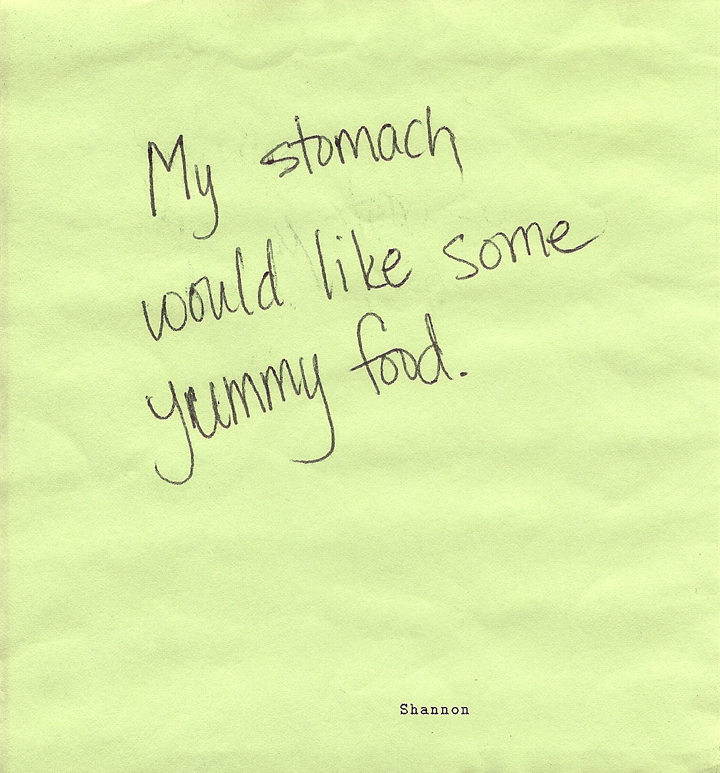 My stomach
would like some
yummy food.
Shannon